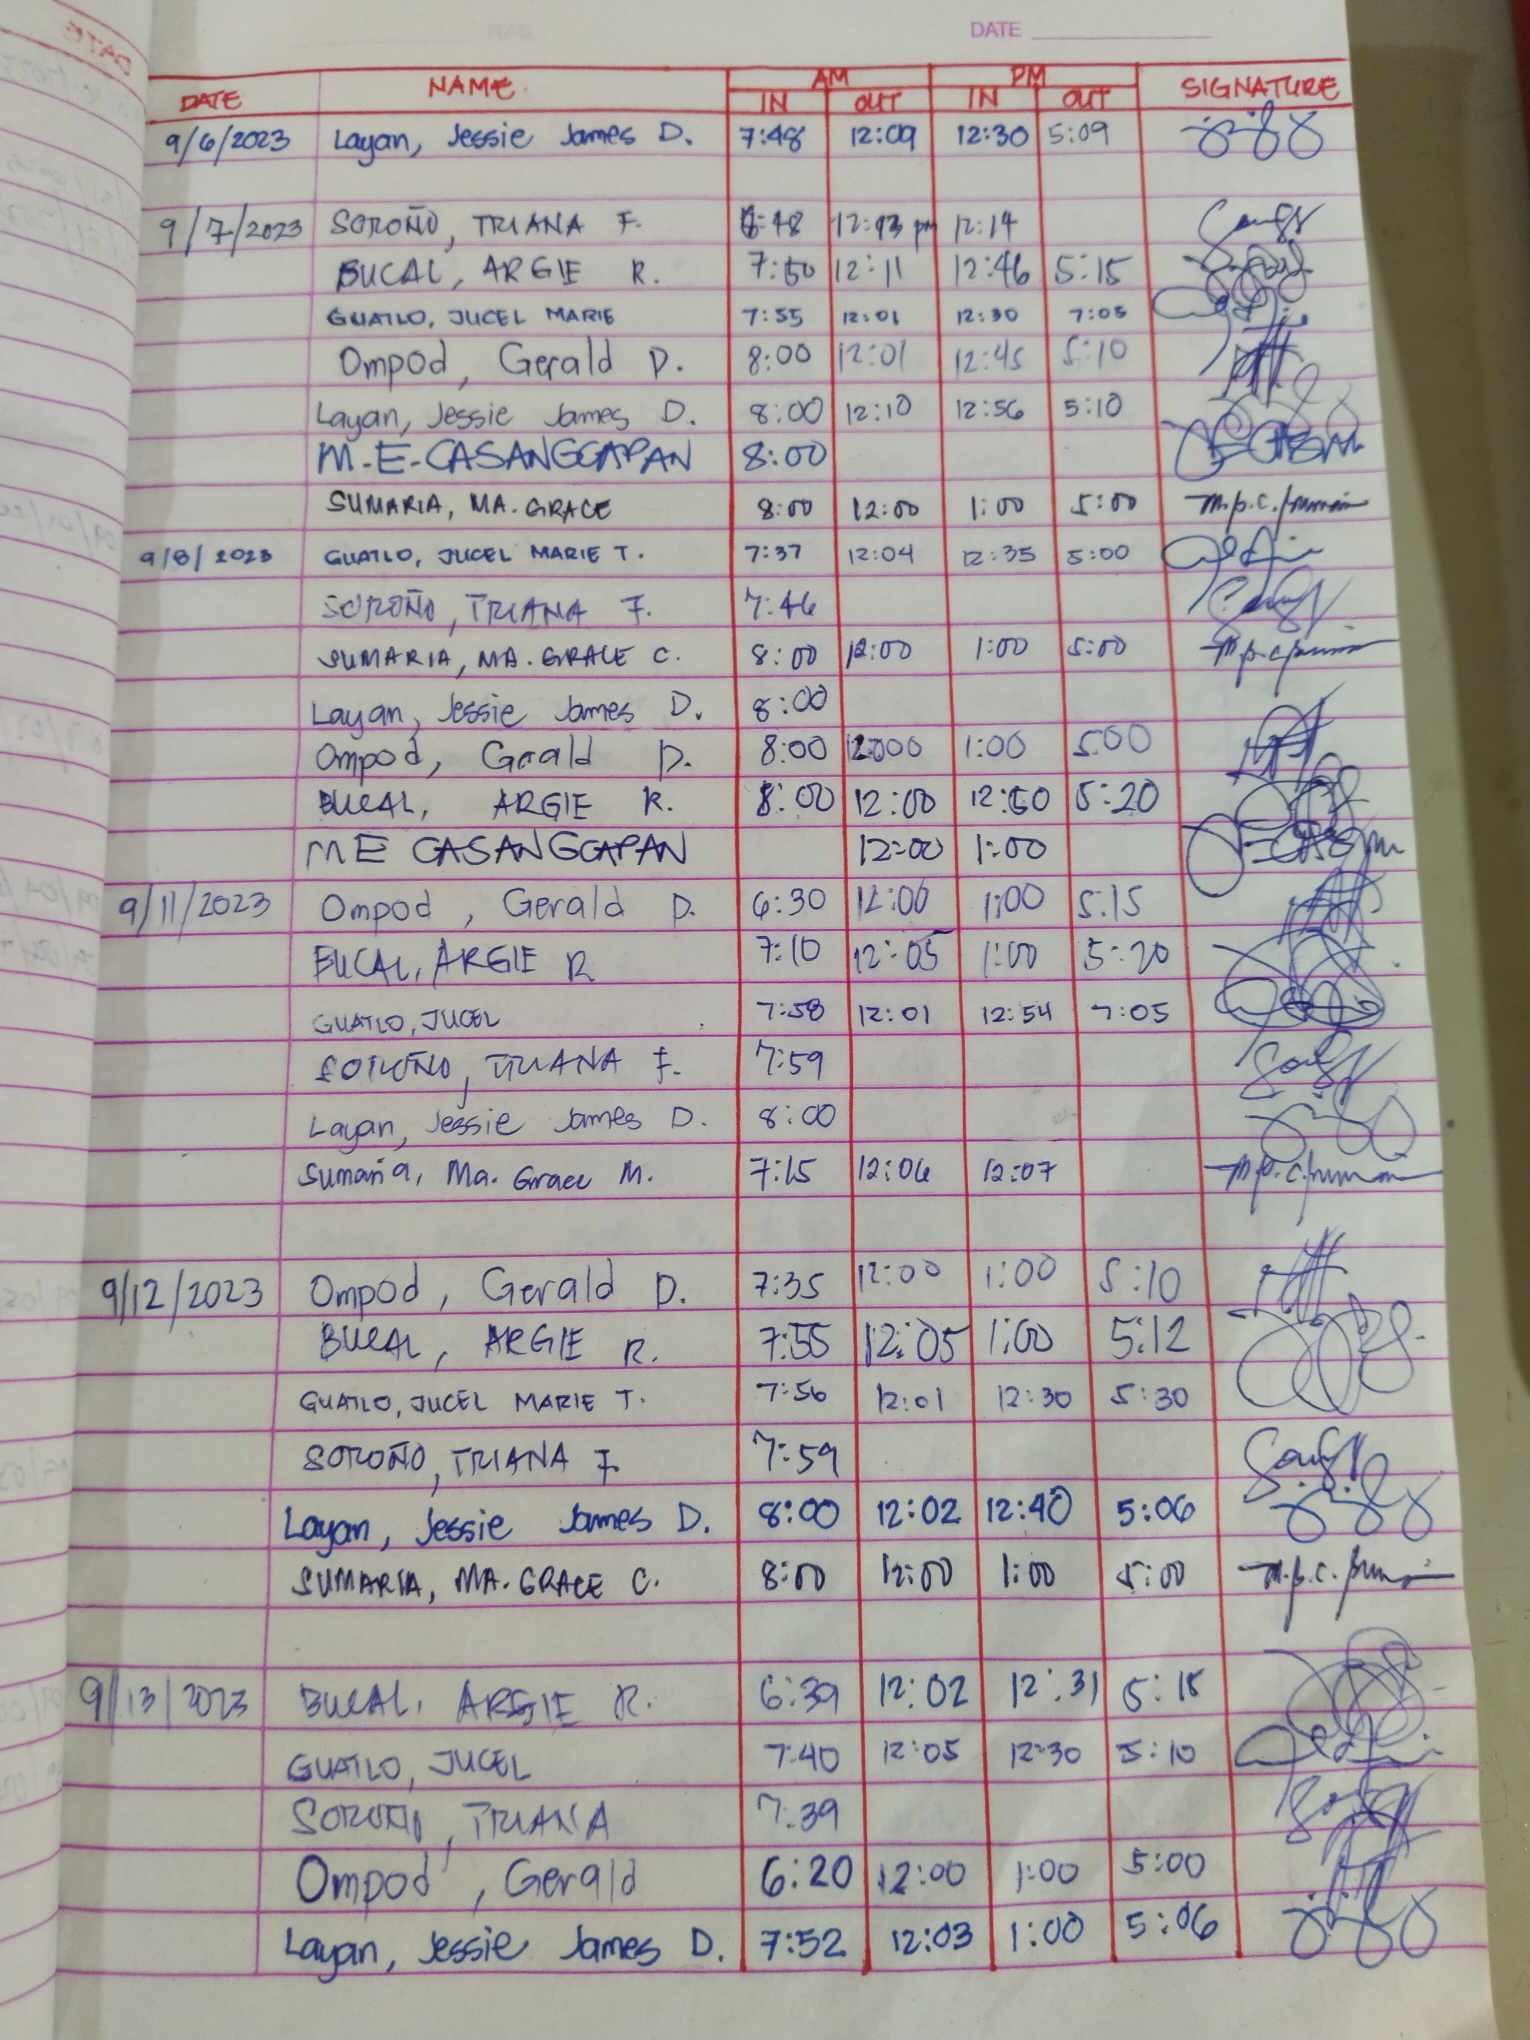 DATE
DATE NAME AM PM SIGNATURE
IN OUT IN OUT
9/6/2023 Layan, Jessie James D. 7:48 12:09 12:30 5:09
9/7/2023 SOROÑO, TRIANA F. 6:48 12:13 pm 12:14
BUCAL, ARGIE R. 7:50 12:11 12:46 5:15
GUATLO, JUCEL MARIE 7:55 12:01 12:30 7:05
Ompod, Gerald D. 8:00 12:01 12:45 5:10
Layan, Jessie James D. 8:00 12:10 12:56 5:10
M-E-CASANGCAPAN 8:00
SUMARIA, MA. GRACE 8:00 12:00 1:00 5:00
9/8/2023 GUATLO, JUCEL MARIE T. 7:37 12:04 12:35 5:00
SOROÑO, TRIANA F. 7:46
SUMARIA, MA. GRACE C. 8:00 12:00 1:00 5:00
Layan, Jessie James D. 8:00
Ompod, Gerald D. 8:00 1:00 5:00
BUCAL, ARGIE R. 8:00 12:00 12:50 5:20
M E CASANGCAPAN 12:00 1:00
9/11/2023 Ompod, Gerald D. 6:30 12:00 1:00 5:15
BUCAL, ARGIE R 7:10 12:05 1:00 5:20
GUATLO, JUCEL 7:58 12:01 12:54 7:05
SOROÑO, TRIANA F. 7:59
Layan, Jessie James D. 8:00
Sumaria, Ma. Grace M. 7:15 12:06 12:07
9/12/2023 Ompod, Gerald D. 7:35 12:00 1:00 5:10
BUCAL, ARGIE R. 7:55 12:05 1:00 5:12
GUATLO, JUCEL MARIE T. 7:56 12:01 12:30 5:30
SOROÑO, TRIANA F. 7:59
Layan, Jessie James D. 8:00 12:02 12:40 5:06
SUMARIA, MA. GRACE C. 8:00 12:00 1:00 5:00
9/13/2023 BUCAL, ARGIE R. 6:39 12:02 12:31 5:15
GUATLO, JUCEL 7:40 12:05 12:30 5:10
SOROÑO, TRIANA 7:39
Ompod, Gerald 6:20 12:00 1:00 5:00
Layan, Jessie James D. 7:52 12:03 1:00 5:06